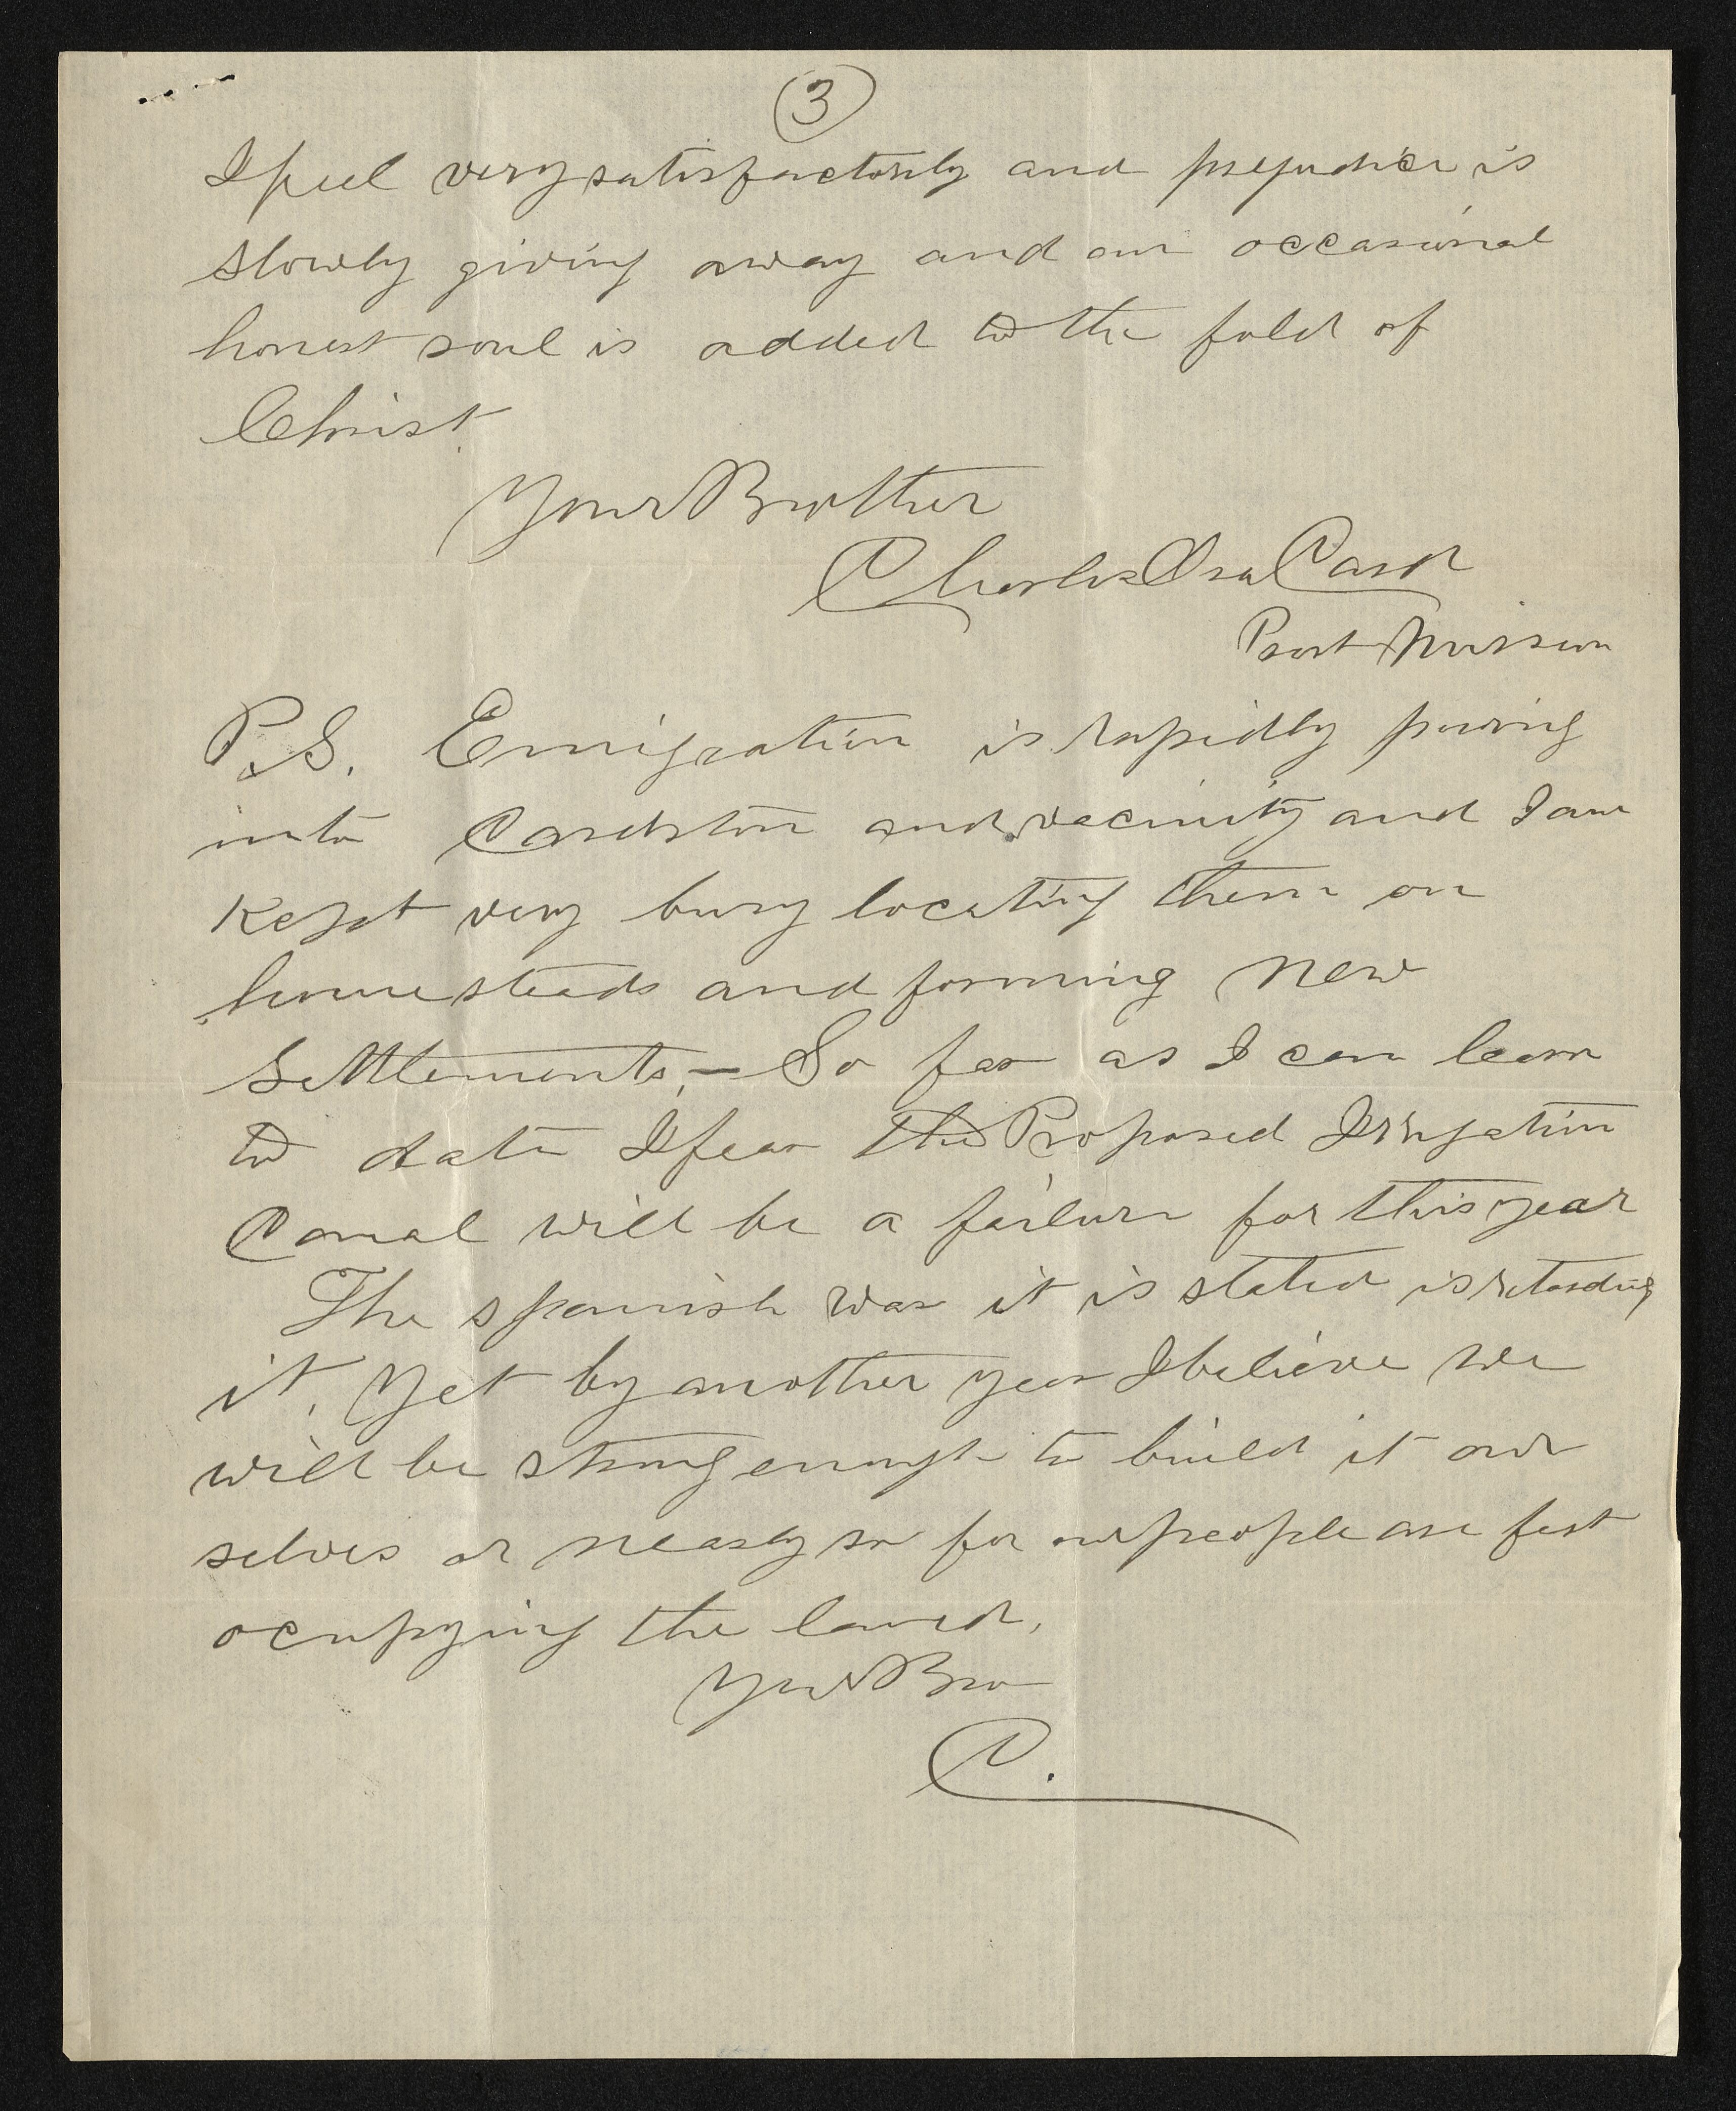 3
I feel very satisfactorily and prejudice is
slowly giving away and an occasional
honest soul is added to the fold of
Christ.
Your Brother
Charles Ora Card
Prest Mission
P.S. Emigration is rapidly pouring
into Cardston and vecinity and I am
Kept very busy locating them on
homesteads and forming New
Settlements, – So far as I can learn
to date I fear the Proposed Irrigation
Canal will be a failure for this year
The spanish war it is stated is retarding
it. Yet by another year I believe we
will be strong enough to build it our
selves or nearly so for our people are fast
ocupying the land.
Your Bro
C.